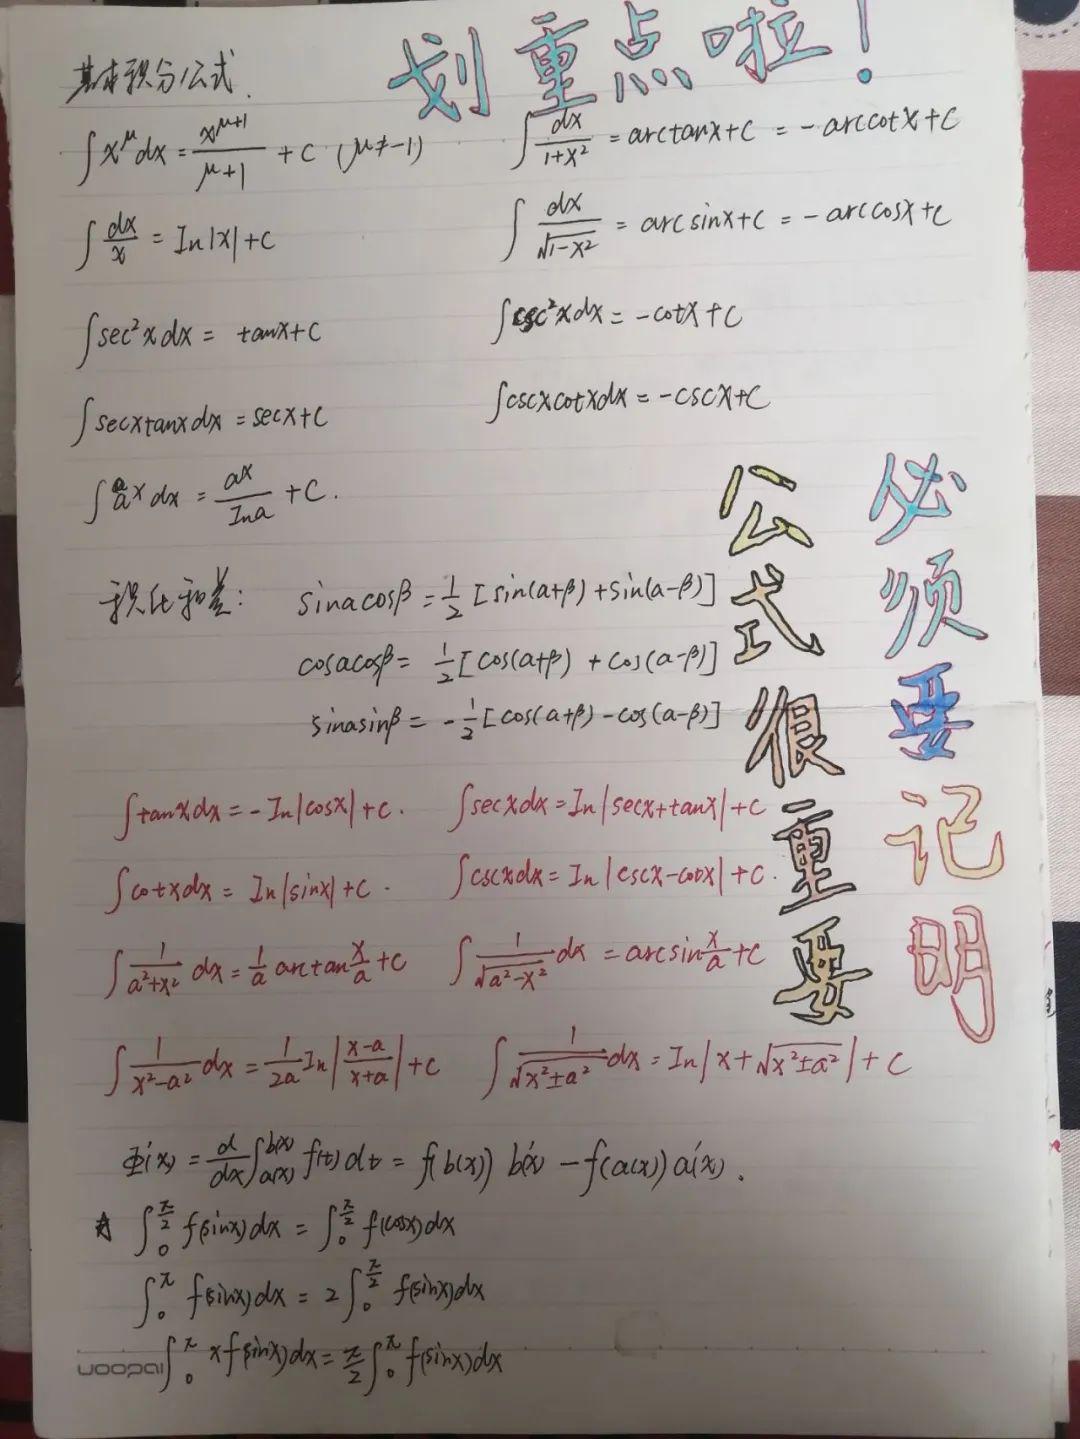 划重点啦！
基本积分公式.
∫x^μ dx = x^(μ+1)/(μ+1) + C (μ≠-1)
∫dx/(1+x²) = arctanx+C = -arccotx+C
∫dx/x = In|x|+C
∫dx/√(1-x²) = arcsinx+C = -arccosx+C
∫sec²xdx = tanx+C
∫csc²xdx = -cotx+C
∫secxtanxdx = secx+C
∫cscxcotxdx = -cscx+C
∫a^x dx = ax/Ina + C.
积化和差:
sinacosβ = 1/2 [sin(a+β)+sin(a-β)]
cosacosβ = 1/2 [cos(a+β) + cos(a-β)]
sinasinβ = -1/2 [cos(a+β)-cos(a-β)]
公式很重要
必须要记明
∫tanxdx = -In|cosx|+C.
∫secxdx = In|secx+tanx|+C
∫cotxdx = In|sinx|+C.
∫cscxdx = In|cscx-cotx|+C.
∫1/(a²+x²) dx = 1/a arctan x/a + C
∫1/√(a²-x²) dx = arcsin x/a + C
∫1/(x²-a²) dx = 1/2a In|(x-a)/(x+a)|+C
∫1/√(x²±a²) dx = In|x+√(x²±a²)|+C
Φ'(x) = d/dx ∫_a(x)^b(x) f(t)dt = f(b(x)) b'(x) - f(a(x)) a'(x).
☆ ∫_0^(π/2) f(sinx)dx = ∫_0^(π/2) f(cosx)dx
∫_0^π f(sinx)dx = 2∫_0^(π/2) f(sinx)dx
∫_0^π xf(sinx)dx = π/2 ∫_0^π f(sinx)dx
uoopai